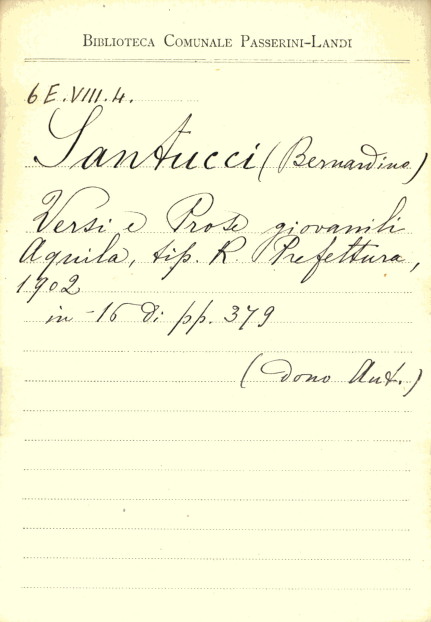 BIBLIOTECA COMUNALE PASSERINI-LANDI
6 E.VIII.4.
Santucci (Bernardino)
Versi e Prose giovanili
Aquila, tip. R. Prefettura,
1902
in-16 di pp. 379
(dono Aut.)